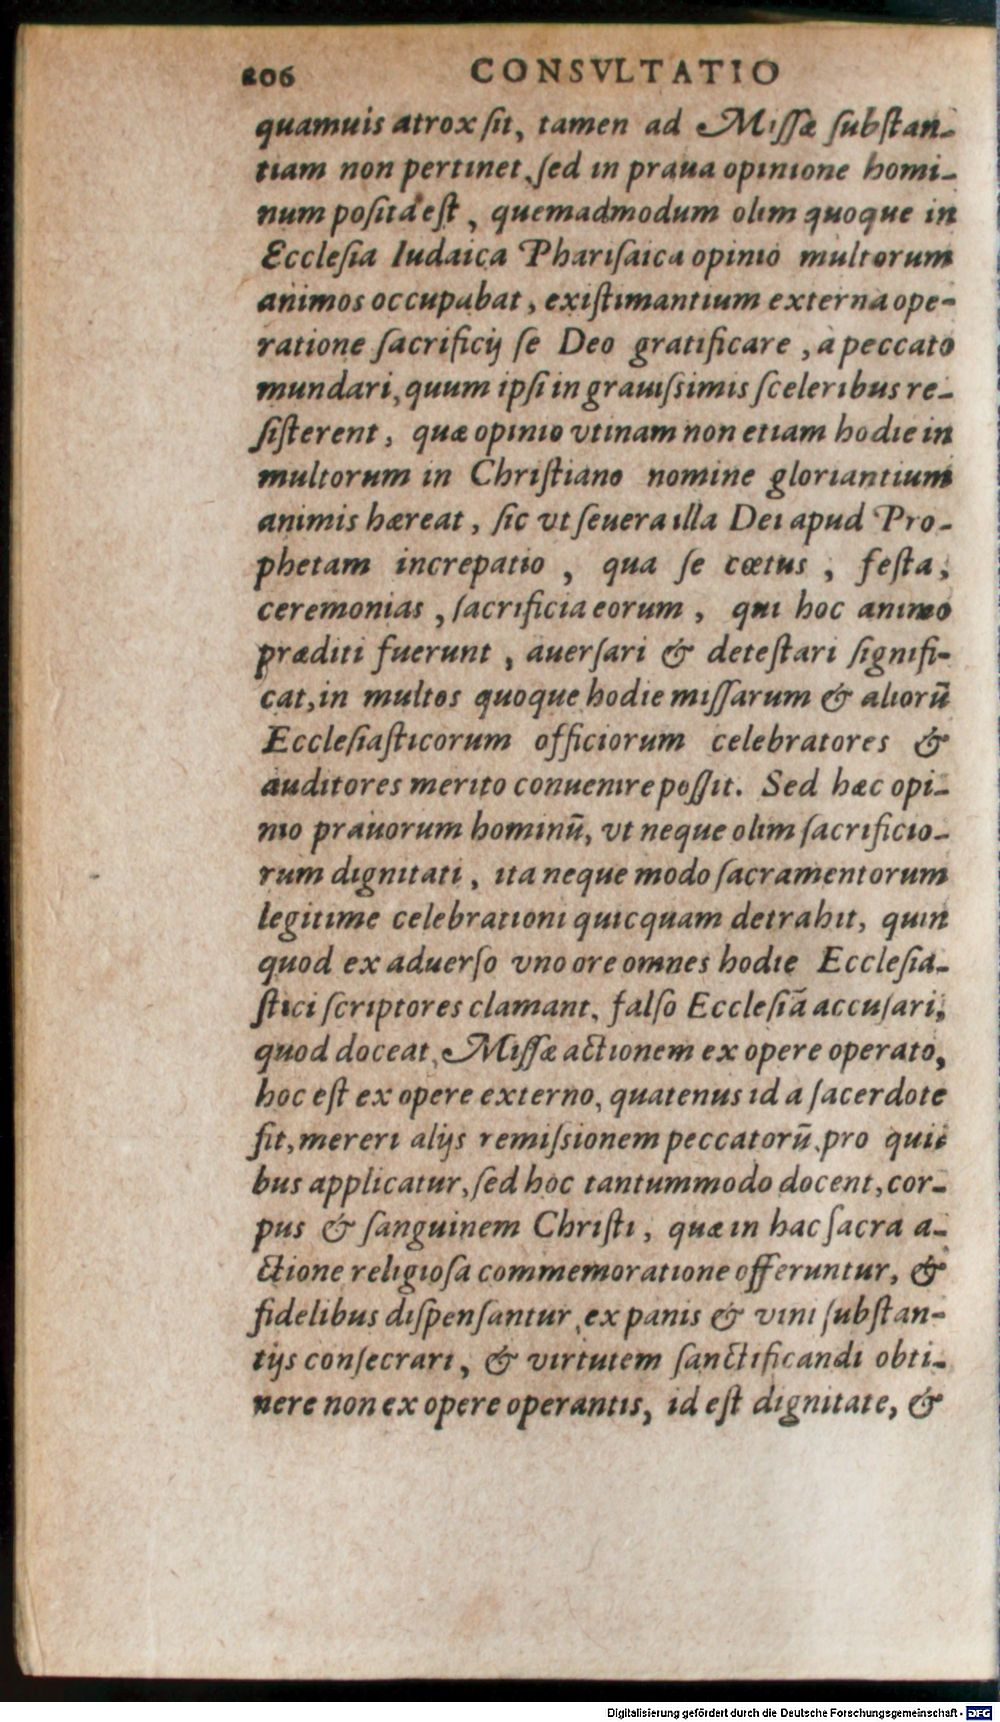 206 CONSVLTATIO
quamuis atrox ſit, tamen ad Miſſæ ſubſtan-
tiam non pertinet, ſed in praua opinione homi-
num poſita eſt, quemadmodum olim quoque in
Eccleſia Iudaica Phariſaica opinio multorum
animos occupabat, exiſtimantium externa ope-
ratione ſacrificij ſe Deo gratificare, a peccato
mundari, quum ipſi in grauiſsimis ſceleribus re-
ſiſterent, quæ opinio vtinam non etiam hodie in
multorum in Chriſtiano nomine gloriantium
animis hæreat, ſic vt ſeuera illa Dei apud Pro-
phetam increpatio, qua ſe cœtus, feſta,
ceremonias, ſacrificia eorum, qui hoc animo
præditi fuerunt, auerſari & deteſtari ſignifi-
cat, in multos quoque hodie miſſarum & aliorū
Eccleſiaſticorum officiorum celebratores &
auditores merito conuenire poſſit. Sed hæc opi-
nio prauorum hominū, vt neque olim ſacrificio-
rum dignitati, ita neque modo ſacramentorum
legitime celebrationi quicquam detrahit, quin
quod ex aduerſo vno ore omnes hodie Eccleſia-
ſtici ſcriptores clamant, falſo Eccleſiā accuſari,
quod doceat, Miſſæ actionem ex opere operato,
hoc eſt ex opere externo, quatenus id a ſacerdote
fit, mereri alijs remiſsionem peccatorū, pro qui-
bus applicatur, ſed hoc tantummodo docent, cor-
pus & ſanguinem Chriſti, quæ in hac ſacra a-
ctione religioſa commemoratione offeruntur, &
fidelibus diſpenſantur, ex panis & vini ſubſtan-
tijs conſecrari, & virtutem ſanctificandi obti-
nere non ex opere operantis, id eſt dignitate, &
Digitalisierung gefördert durch die Deutsche Forschungsgemeinschaft - DFG